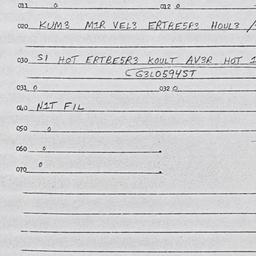 011 0 012 0
020 KUM3 MIR VEL3 ERTBE5R3 HOUL3 /
030 SI HOT ERTBE5R3 KOULT AV3R HOT
G3LO594ST
031 0 032 0
040 NIT FIL
050 0
060 0
070 0